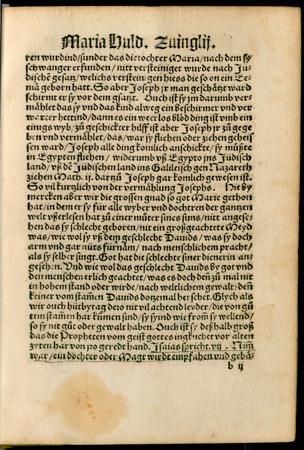 Maria Huld. Zuinglij.
ren wurdind/sunder das die tochter Maria/nach dem sy
schwanger erfunden/nitt versteiniget wurde nach Ju-
dische gesatz/welichs versteingen hiess die so on ein Ee-
mā geborn hatt. So aber Joseph jr man geschätzt ward
schirmte er sy vor dem gsatzt. Ouch ist sy jm darumb ver-
mählet das sy vnd das kind alweg ein beschirmer vnd ver
warter hettind/dann es ein weer los blöd ding ist vmb ein
einigs wyb/zů geschickter hilff ist aber Joseph jr zů gege
ben vnd vermählet/das/war sy fliehen oder ziehen geheis
sen ward/Joseph alle ding komlich anschickte/sy müßte
in Egypten fliehen/widerumb vß Egypto jns Jüdisch
land/vß dē Jüdischen land ins Galileisch gen Nazareth
ziehen Math. ij. dartzů Joseph gar komlich gewesen ist.
So vil kurtzlich von der vermählung Josephs. Hie by
mercken aber wir die grossen gnad so got Marie gethon
hat/in dem er sy für alle wyber vnd dochtern der gantzen
welt vßerlesen hat zů einer můter sines suns/nitt angeseh
hen das sy schlecht geboren/nit ein großgeachtete Meyd
was/wie wol sy vß dem geschlecht Dauids/was sy doch
arm vnd gar nüts fürnäm/nach menschlichem pracht/
als sy selber singt. Got hat die schlechte siner dienerin an-
gesehen. Vnd wie wol das geschlecht Dauids by got vnd
den menschen erlich geachtet/was es doch den zů mal nit
in hohem stand oder wirde/nach weltlichem gewalt/den
keiner vom stamen Dauids dozemal herschet. Glych als
wir ouch hütby tag dero nit vil achtend leyder/die von gů
ten stamen har kümen sind/sy syind wie from sy wellend/
so sy nit gůt oder gewalt haben. Ouch ist sy deßhalb groß
das die Propheten vom geist gottes ingfürt vor alten
zyten har von jro geredt hand. Isaias spricht. vij. Nim
war/ein dochter oder Magt wirdt empfahen vnd gebä-
b ij